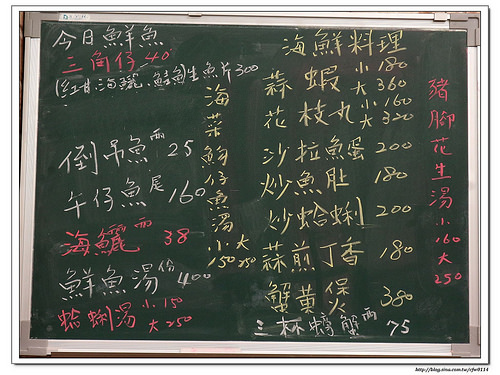 今日鮮魚
三角仔 40
(紅甘.海鱺.鮭魚)生魚片300
倒吊魚 兩 25
午仔魚 尾 160
海鱺 兩 38
鮮魚湯 份 400
蛤蜊湯 小 150
大 250
海菜魩仔魚湯
小 150
大 250
海鮮料理
蒜蝦 小 180
大 360
花枝丸 小 160
大 320
沙拉魚蛋 200
炒魚肚 180
炒蛤蜊 200
蒜煎丁香 180
蟹黃保 380
三杯螃蟹 兩 75
豬腳花生湯
小 160
大 250
http://blog.sina.com.tw/cfw0114